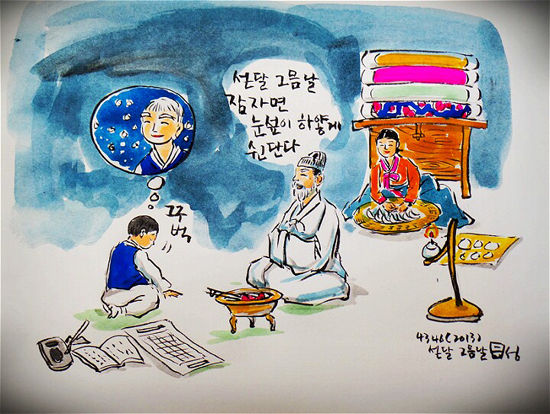 섣달 그믐날
잠자면
눈섶이 하얗게
쉰단다
꾸
벅
섣달 그믐날